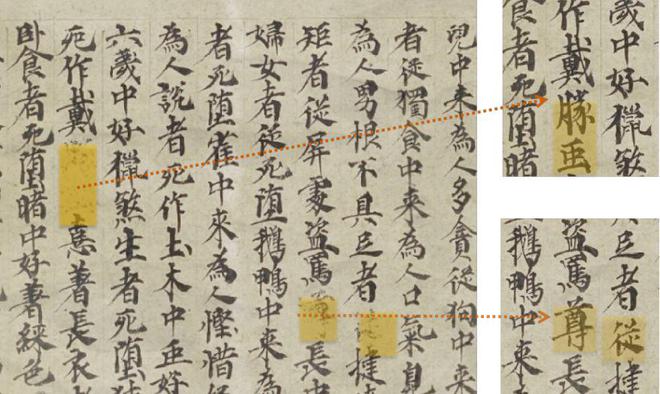 兒中來為人多貪從狗中來
者從獨食中來為人口氣臭
為人男根不具足者從揵
矩者從屏處盜罵尊長中
婦女者從死墮鵝鴨中來為
者死墮雀中來為人慳惜
為人說者死作土木中䖝好
六歲中好獵煞生者死墮
死作戴憙著長衣
臥食者死墮暗中好著綵色
歲中好獵煞
作戴豚䖝
食者死墮暗
足者從揵
盜罵尊長
鵝鴨中來